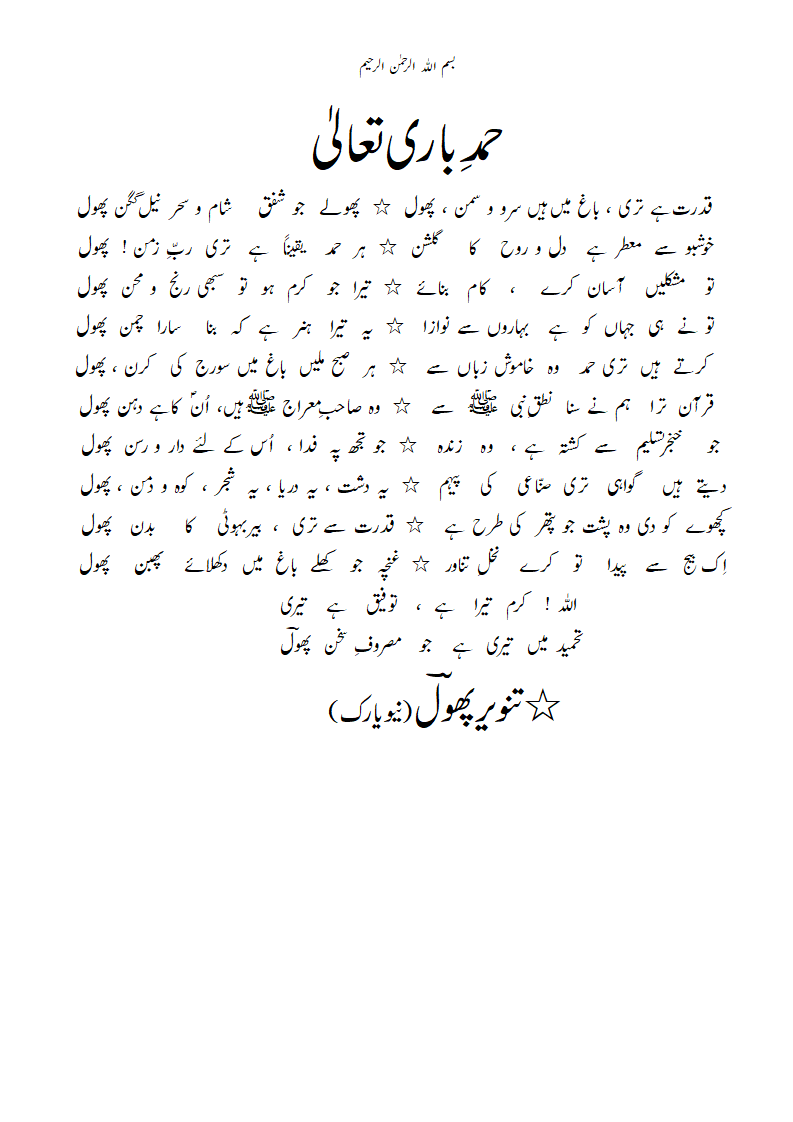 بسم اللہ الرحمٰن الرحیم
حمدِ باری تعالیٰ
قدرت ہے تری ، باغ میں ہیں سرو و سمن ، پھول ☆ پھولے جو شفق شام و سحر نیل گگن پھول
خوشبو سے معطر ہے دل و روح کا گلشن ☆ ہر حمد یقیناً ہے تری ربِّ زمن ! پھول
تو مشکلیں آسان کرے ، کام بنائے ☆ تیرا جو کرم ہو تو سبھی رنج و محن پھول
تو نے ہی جہاں کو ہے بہاروں سے نوازا ☆ یہ تیرا ہنر ہے کہ بنا سارا چمن پھول
کرتے ہیں تری حمد وہ خاموش زباں سے ☆ ہر صبح ملیں باغ میں سورج کی کرن ، پھول
قرآن ترا ہم نے سنا نطقِ نبی ﷺ سے ☆ وہ صاحبِ معراج ﷺ ہیں، اُنؐ کا ہے دہن پھول
جو خنجرِ تسلیم سے کشتہ ہے ، وہ زندہ ☆ جو تجھ پہ فدا ، اُس کے لئے دار و رسن پھول
دیتے ہیں گواہی تری صنّاعی کی پیہم ☆ یہ دشت ، یہ دریا ، یہ شجر ، کوہ و دمن ، پھول
کچھوے کو دی وہ پشت جو پتھر کی طرح ہے ☆ قدرت سے تری ، بیر بہوٹی کا بدن پھول
اِک بیج سے پیدا تو کرے نخلِ تناور ☆ غنچہ جو کھلے باغ میں دکھلائے پھبن پھول
اللہ ! کرم تیرا ہے ، توفیق ہے تیری
تحمید میں تیری ہے جو مصروفِ سخن پھولؔ
☆ تنویر پھولؔ (نیویارک)